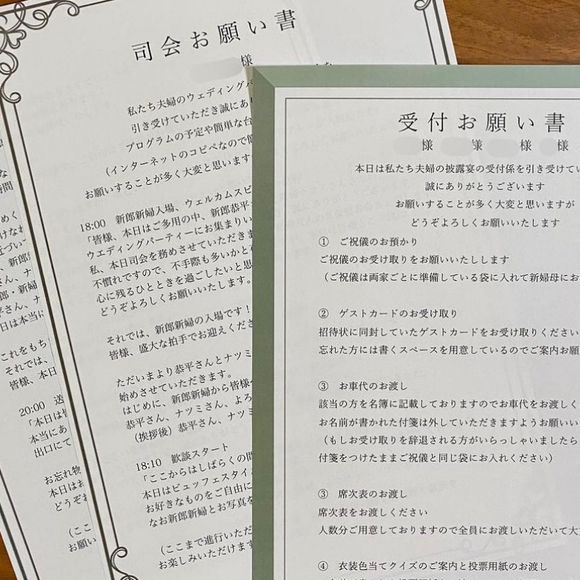 司会お願い書
様
私たち夫婦のウェディングパ
引き受けていただき誠にあ
プログラムの予定や簡単な台
(インターネットのコピペなので間
お願いすることが多く大変と思います
18:00 新郎新婦入場、ウェルカムスピ
「皆様、本日はご多用の中、新郎恭平
ウエディングパーティーにお集まりい
私、本日司会を務めさせていただきま
不慣れですので、不手際も多いかと存
心に残るひとときを過ごしたいと思
どうぞよろしくお願いいたします。
それでは、新郎新婦の入場です!
皆様、盛大な拍手でお迎えくださ
ただいまより恭平さんとナツミ
始めさせていただきます。
はじめに、新郎新婦から皆様へ
恭平さん、ナツミさん、よろ
(挨拶後)恭平さん、ナツミ
18:10 歓談スタート
「ここからはしばらくの間
本日はビュッフェスタイ
お好きなものをご自由に
なお新郎新婦とお写真を
(ここまで進行いただ
お楽しみいただけます
時間
これをもち
それでは、
皆様、本日
20:00 送
「本日は
本当にあ
出口にて
お忘れ物
本日はお
どうぞ
(ここ
お願い
受付お願い書
様 様 様 様
本日は私たち夫婦の披露宴の受付係を引き受けてい
誠にありがとうございます
お願いすることが多く大変と思いますが
どうぞよろしくお願いいたします
① ご祝儀のお預かり
ご祝儀のお受け取りをお願いいたしします
(ご祝儀は両家ごとに準備している袋に入れて新婦母にお
② ゲストカードのお受け取り
招待状に同封していたゲストカードをお受け取りください
忘れた方には書くスペースを用意しているのでご案内お願
③ お車代のお渡し
該当の方を名簿に記載しておりますのでお車代をお渡しく
お名前が書かれた付箋は外していただきますようお願いい
(もしお受け取りを辞退される方がいらっしゃいましたら
付箋をつけたままご祝儀と同じ袋にお入れください)
③ 席次表のお渡し
席次表をお渡しください
人数分ご用意しておりますので全員にお渡しいただいて大
④ 衣装色当てクイズのご案内と投票用紙のお渡し